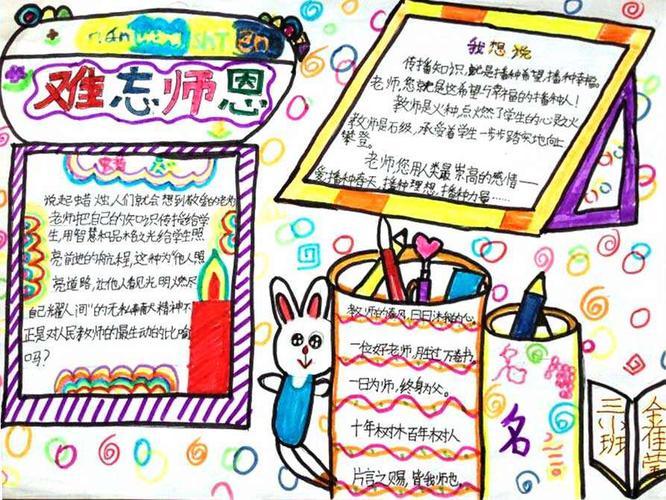 nán wàng shī ēn
难忘师恩
说起蜡烛人们就会想到敬爱的老
老师把自己的知识传播给学
生,用智慧和品格之光给学生照
亮前进的航程,这种为他人照
亮道路,让他人看见光明燃尽
自己"耀人间"的无私奉献精神不
正是对人民教师的最生动的比喻
吗?
我想说
传播知识,就是播种希望,播种幸福。
老师,您就是这希望与幸福的播种人!
教师是火种,点燃了学生的心灵火
教师是石级,承受着学生一步步踏实地向上
攀登。
老师您用人类最崇高的感情——
爱,播种春天,播种理想,播种力量......
教师的春风,日日沐我的心。
一位好老师,胜过万卷书。
一日为师,终身为父。
十年树木百年树人
片言之赐,皆我师也。
名
言
三小班